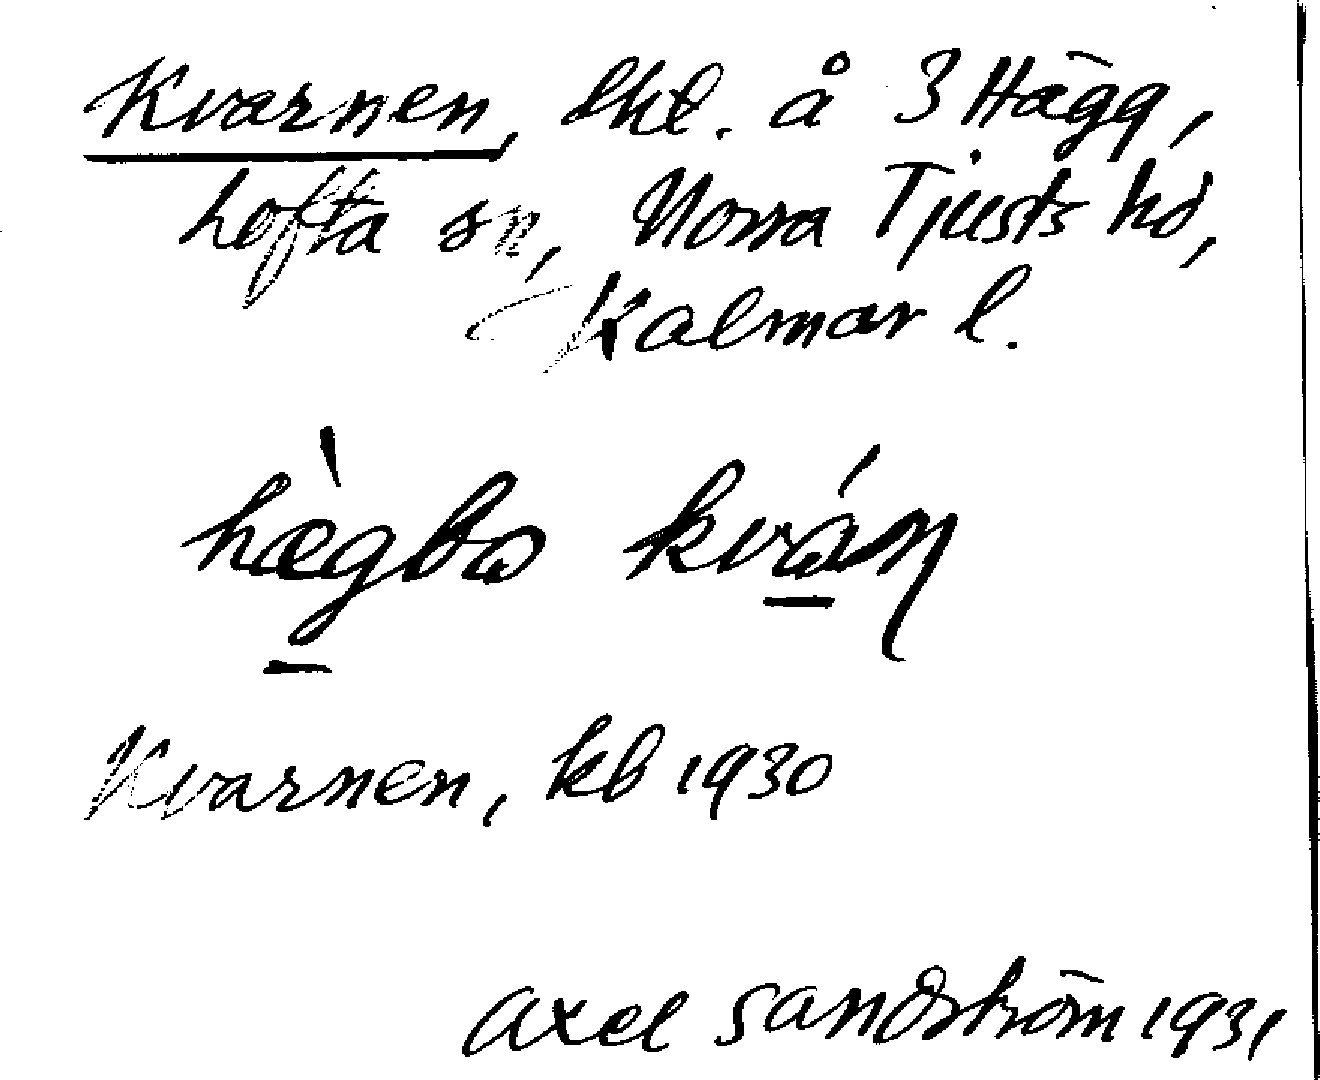 Kvarnen, lht. å 3 Hägg,
Lofta sn, Norra Tjusts hd,
Kalmar l.
hæ̀gbo kván
Kvarnen, kb 1930
Axel Sandström 1931